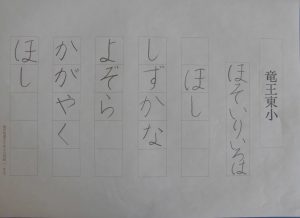 竜王東小
ほそいりいろは
ほし
しずかな
よぞら
かがやく
ほし